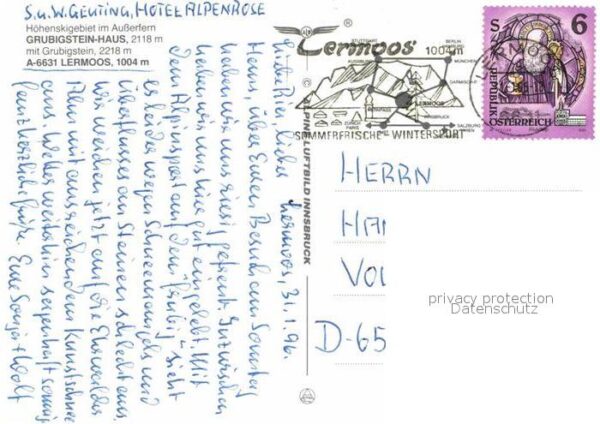 S.u.W. Geuting, HOTEL ALPENROSE
Höhenskigebiet im Außerfern
GRUBIGSTEIN-HAUS, 2118 m
mit Grubigstein, 2218 m
A-6631 LERMOOS, 1004 m
Lermoos, 31.1.96
Liebe Ria, lieber
Heinz, über Euren Besuch am Sonntag
haben wir uns riesig gefreut. Inzwischen
haben wir uns hier gut eingelebt. Mit
dem Skisport auf dem Grubig sieht
es leider wegen Schneemangels und
Überflusses an Steinen schlecht aus.
Wir weichen jetzt auf die Ehrwalder
Alm mit ausreichendem Kunstschnee
aus. Wetter weiterhin sonnig
Ganz herzliche Grüße Eure Sonja + Wolf
ALPINE LUFTBILD INNSBRUCK
Lermoos
1004m
STUTTGART
BERLIN
AUGSBURG
MÜNCHEN
GARMISCH
LERMOOS
INNSBRUCK
ZÜRICH
PARIS
SALZBURG
SOMMERFRISCHE WINTERSPORT
LERMOOS
S 6
REPUBLIK
ÖSTERREICH
HERRN
HAI
VOI
D-65
privacy protection
Datenschutz